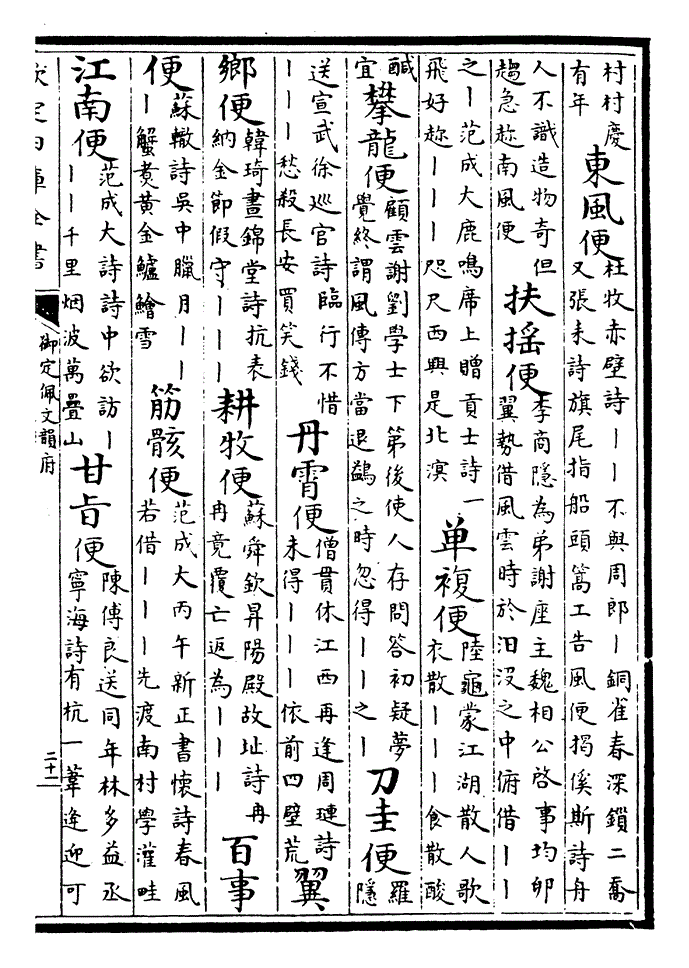 村村慶
有年
東風便
杜牧赤壁詩丨丨不與周郎丨銅雀春深鎖二喬
又張耒詩旗尾指船頭篙工告風便揭傒斯詩舟
人不識造物奇但
趨急趂南風便
扶揺便
李商隱為弟謝座主魏相公啓事均卵
翼勢借風雲時於汨沒之中俯借丨丨
之丨范成大鹿鳴席上贈貢士詩一
飛好趂丨丨丨咫尺西興是北溟
单複便
陸龜蒙江湖散人歌
衣散丨丨丨食散酸
鹹
宜
攀龍便
顧雲謝劉學士下第後使人存問答初疑夢
覺終謂風傳方當退鷁之時忽得丨丨之丨
刀圭便
羅
隱
送宣武徐巡官詩臨行不惜
丨丨丨愁殺長安買笑錢
丹霄便
僧貫休江西再逢周璉詩
未得丨丨丨依前四壁荒
翼
鄉便
韓琦晝錦堂詩抗表
納金節假守丨丨丨
耕牧便
蘇舜欽昇陽殿故址詩冉
冉竟覆亡返為丨丨丨
百事
便
蘇轍詩吳中臘月丨丨
丨蟹煑黄金鱸鱠雪
筋骸便
范成大丙午新正書懷詩春風
若借丨丨丨先渡南村學灌畦
江南便
范成大詩詩中欲訪丨
丨丨千里烟波萬疊山
甘旨便
陳傅良送同年林多益丞
寧海詩有杭一葦逢迎可
欽定四庫全書
御定佩文韻府
二十一